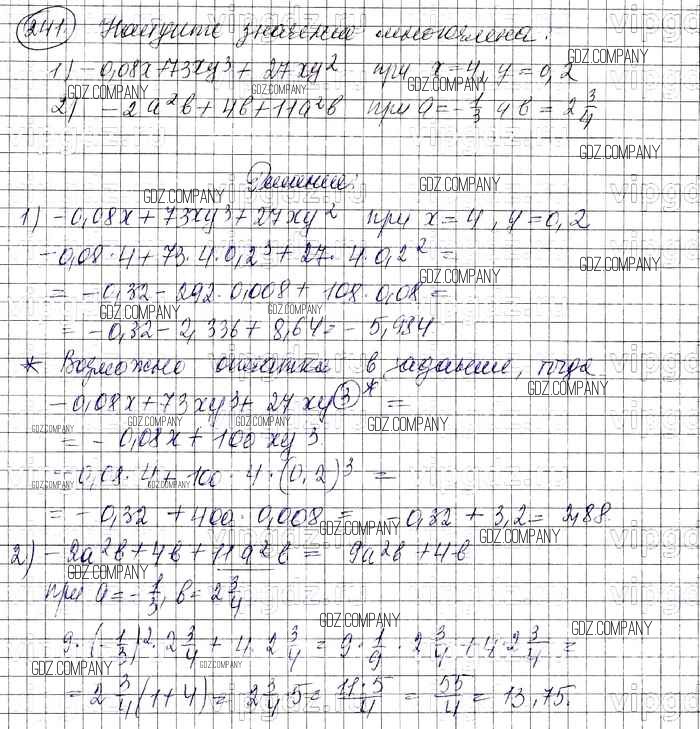 241. Найдите значение многочлена:
1) -0,08x+73xy³+27xy² при x=4, y=0,2
2) -2a²b+4b+11a²b при a=-1/3 и b=2 3/4
Решение:
1) -0,08x+73xy³+27xy² при x=4, y=0,2
-0,08·4+73·4·0,2³+27·4·0,2²=
=-0,32-292·0,008+108·0,08=
=-0,32-2,336+8,64=-5,984
* Возможно опечатка в задании, тогда
-0,08x+73xy³+27xy③* =
=-0,08x+100xy³
-0,08·4+100·4·(0,2)³=
=-0,32+400·0,008=-0,32+3,2=2,88
2) -2a²b+4b+11a²b=9a²b+4b
при a=-1/3, b=2 3/4
9·(-1/3)²·2 3/4+4·2 3/4=9·1/9·2 3/4+4·2 3/4=
=2 3/4(1+4)=2 3/4·5=11·5/4=55/4=13,75.